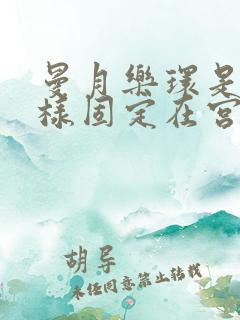 曼月樂環是
樣固定在宮
胡导
未经同意禁止转载